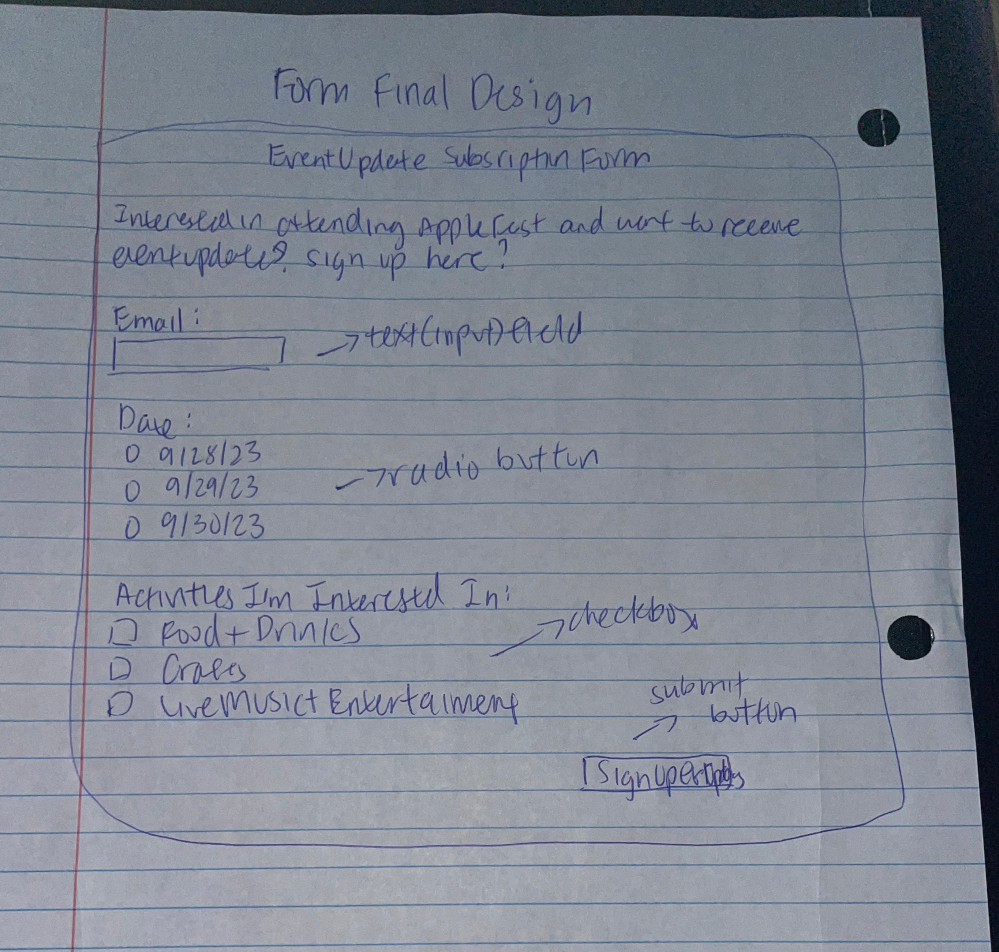 Form Final Design
Event Update Subscriptin Form
Interested in attending AppleFest and want to receive
event update? sign up here?
Email:
→text(input) field
Date:
O 9/28/23
O 9/29/23
O 9/30/23
→radio button
Activities I'm Interested In:
Food + Drinks
Crafts
Live Music + Entertaiment
→checkbox
submit
→ button
Sign Up